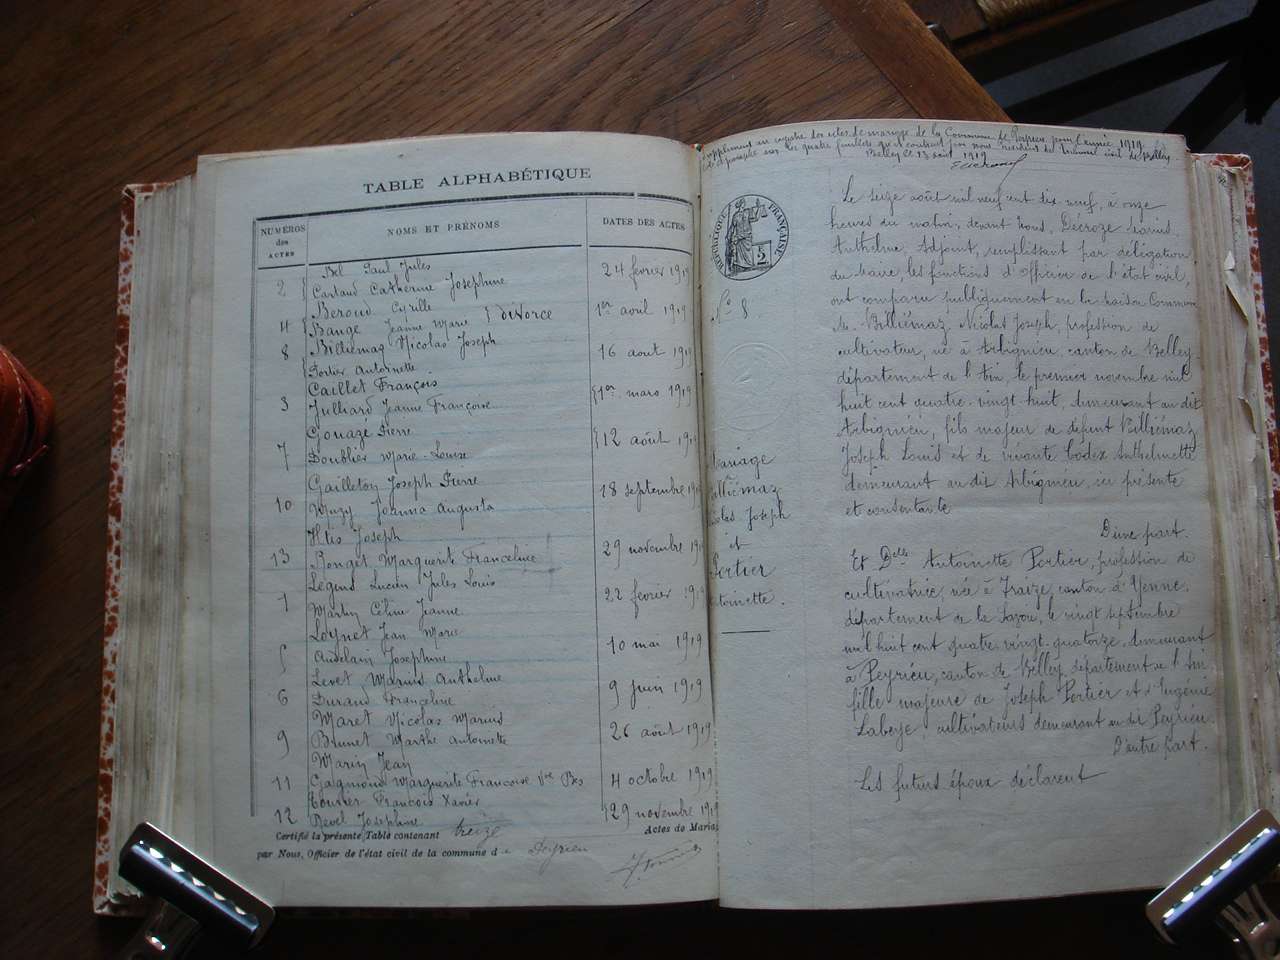 TABLE ALPHABÉTIQUE
NUMÉROS des ACTES
NOMS ET PRÉNOMS
DATES DES ACTES
Bel Paul Jules
2 Cartaud Catherine Josephine 24 fevrier 1919
Beroud Cyrille
4 Bange Jeanne Marie divorce 1er avril 1919
8 Billiemaz Nicolas Joseph 16 aout 1919
Portier Antoinette
Caillet François
3 Julliard Jeanne Françoise 1er mars 1919
Gouazé Pierre
7 Doublier Marie Louise 12 août 1919
Gailleton Joseph Pierre
10 Joanna Augusta 18 septembre 1919
Joseph
13 Ronget Marguerite Franceline 29 novembre 1919
Lucien Jules Louis
1 Martin Céline Jeanne 22 fevrier 1919
Loynet Jean Marie
5 Andelain Josephine 10 mai 1919
Levet Marius Anthelme
6 Durand Franceline 9 juin 1919
Maret Nicolas Marius
9 Brunet Marthe Antoinette 26 août 1919
Marin Jean
11 Marguerite Francoise Vve 4 octobre 1919
Tournier Francois Xavier
12 Revel Josephine 29 novembre 1919
Certifié la présente Table contenant treize Actes de Maria
par Nous, Officier de l'état civil de la commune de Peyrieu
Supplement au registre des actes de mariage de la Commune de Peyrieu pour l'année 1919
et paraphé sur les quatre feuillets qu'il contient par nous President du Tribunal civil de Belley
Belley le 13 aout 1919
RÉPUBLIQUE FRANÇAISE
5
N° 8.
Mariage
Billiémaz
Nicolas Joseph
et
Portier
Antoinette.
Le seize août mil neuf cent dix neuf, à onze
heures du matin, devant Nous, Décroze Marius
Anthelme, Adjoint, remplissant par délégation
du Maire les fonctions d'Officier de l'état civil,
ont comparu publiquement en la Maison Commune
M. Billiémaz Nicolas Joseph, profession de
cultivateur, né à Arbignieu, canton de Belley,
département de l'Ain, le premier novembre mil
huit cent quatre-vingt huit, demeurant au dit
Arbignieu, fils majeur de défunt Billiémaz
Joseph Louis et de vivante Codex Anthelmette
demeurant au dit Arbignieu, ici présente
et consentante
D'une part.
Et Delle Antoinette Portier, profession de
cultivatrice, née à Traize, canton à Yenne,
département de la Savoie, le vingt septembre
mil huit cent quatre vingt-quatorze, demeurant
à Peyrieu, canton de Belley, département de l'Ain
fille majeure de Joseph Portier et d'Eugénie
Labeye, cultivateurs demeurant au dit Peyrieu.
D'autre part.
Les futurs époux déclarent